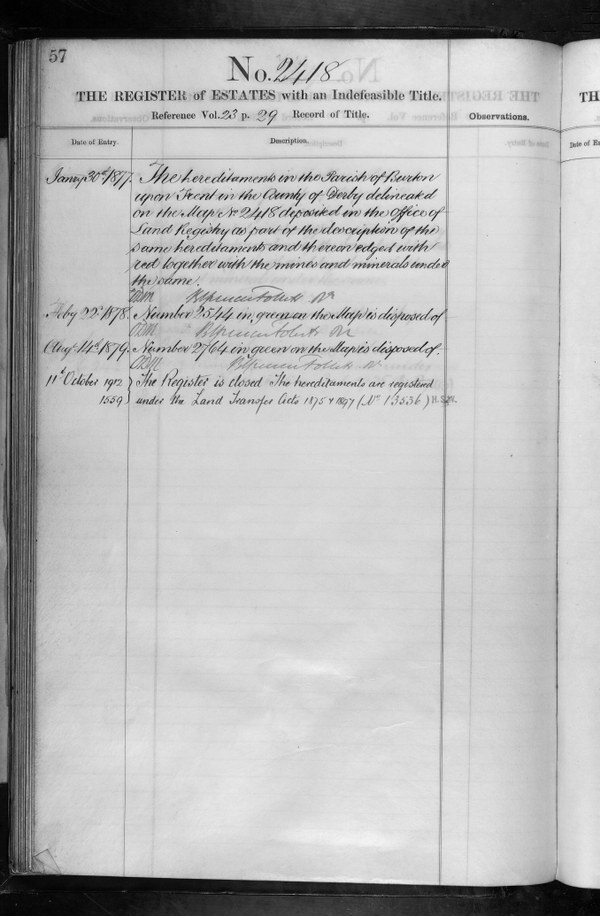 57
No. 2418
THE REGISTER of ESTATES with an Indefeasible Title.
Reference Vol. 23 p. 29 Record of Title.
Observations.
Date of Entry.
Description.
Jany 30th 1877.
The hereditaments in the Parish of Burton
upon Trent in the County of Derby delineated
on the Map No 2418 deposited in the Office of
Land Registry as part of the description of the
same hereditaments and thereon edged with
red together with the mines and minerals under
the same.
Feby 22d 1878. Number 2544 in green on the Map is disposed of
Augt 14th 1879. Number 2764 in green on the Map is disposed of.
11th October 1912 } The Register is closed The hereditaments are registered
1559 } under the Land Transfer Acts 1875 & 1897 (No 13536)
TH
Date of En